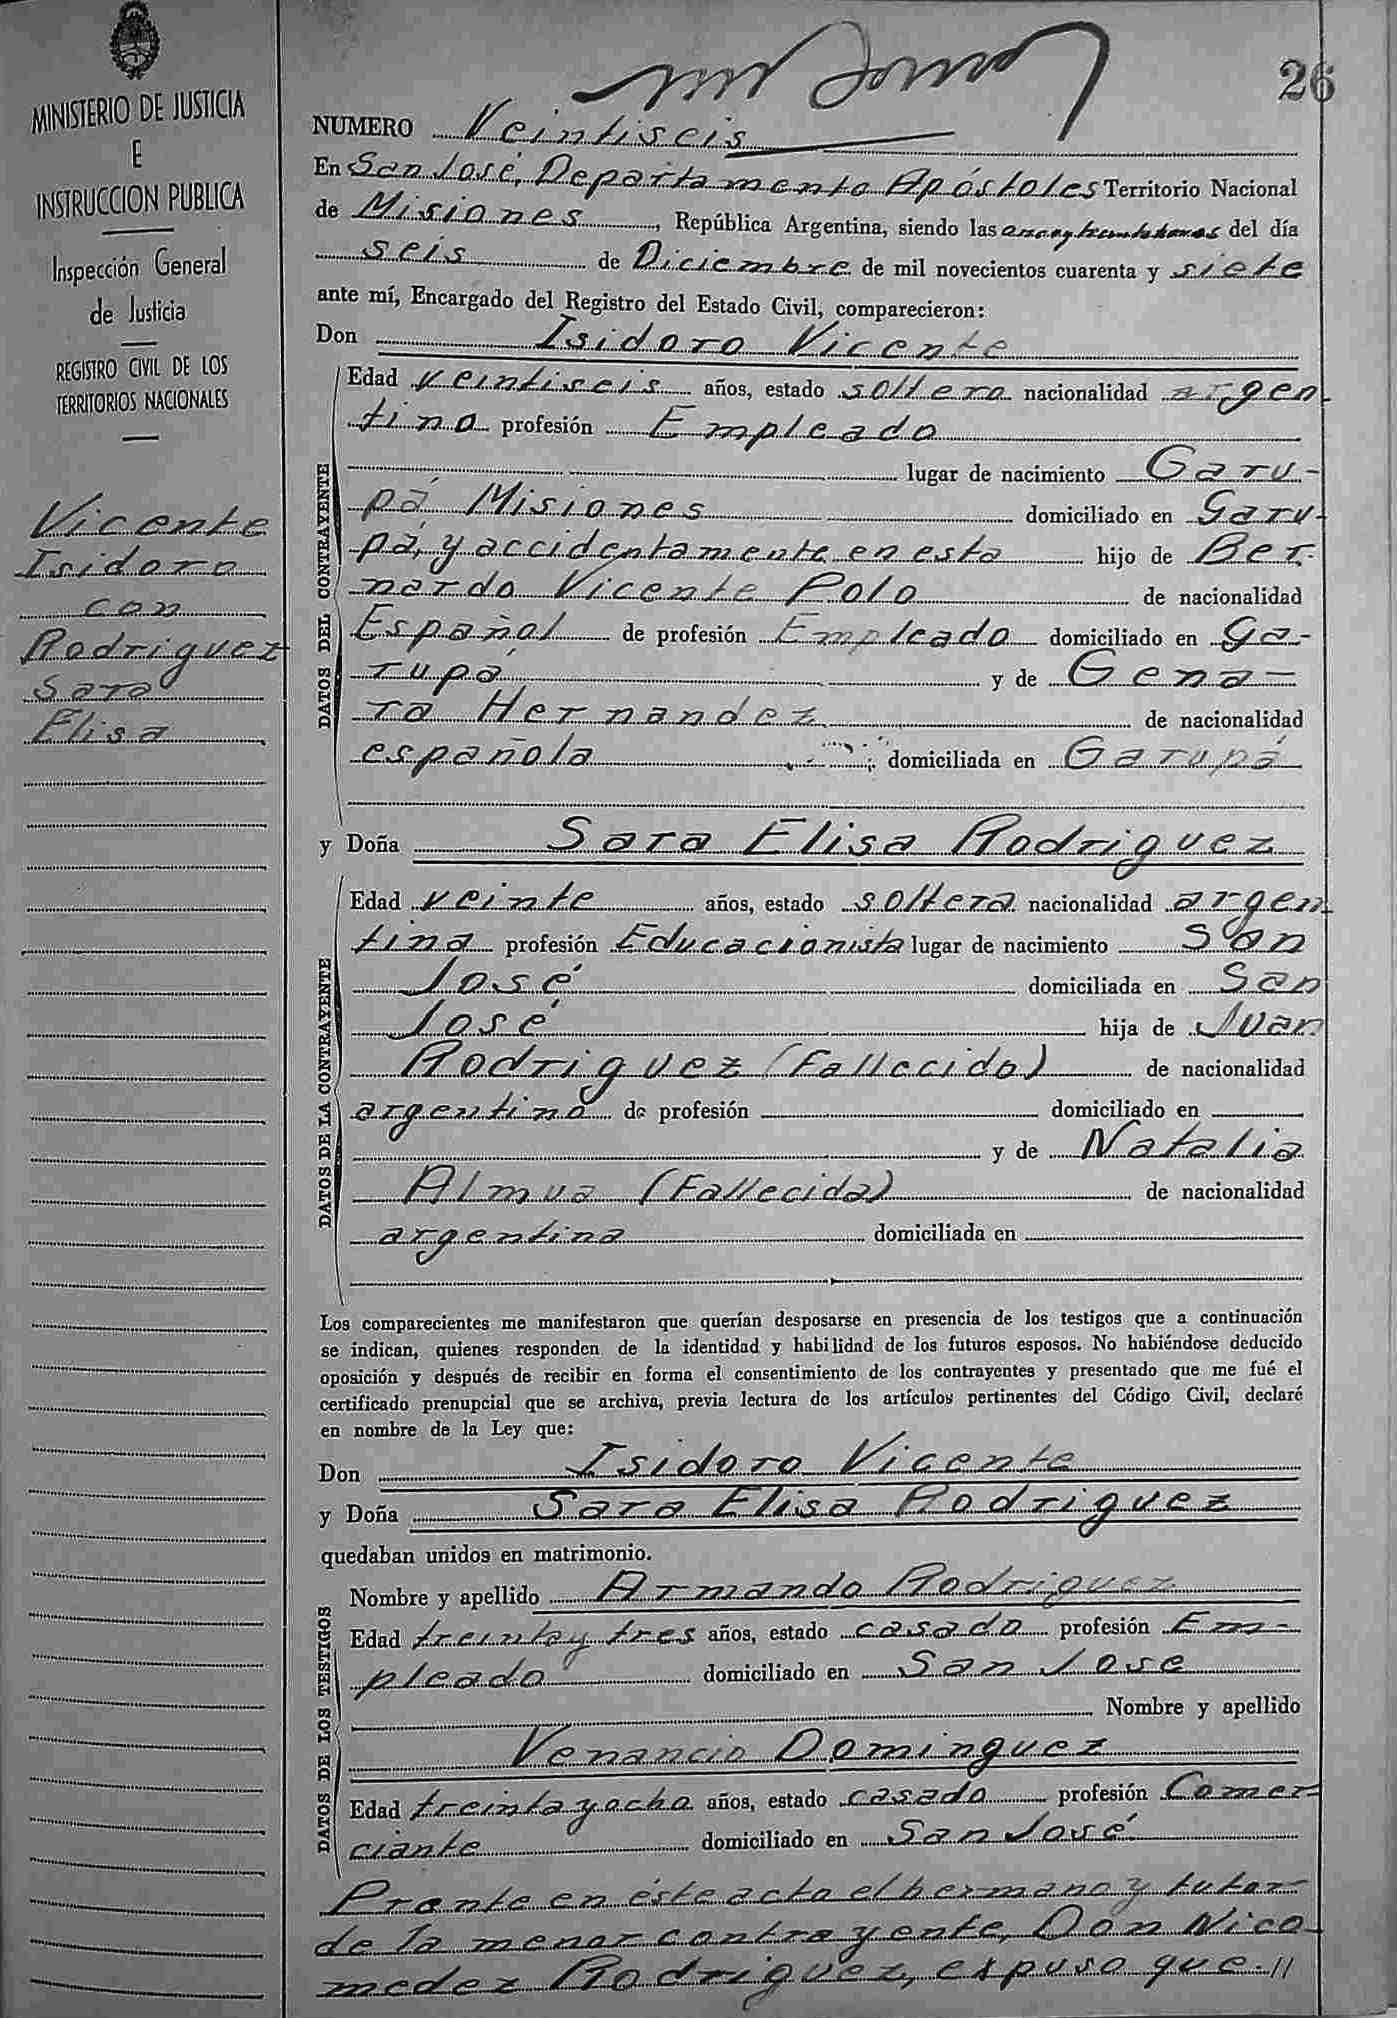 MINISTERIO DE JUSTICIA
E
INSTRUCCION PUBLICA
Inspección General
de Justicia
REGISTRO CIVIL DE LOS
TERRITORIOS NACIONALES
Vicente
Isidoro
con
Rodriguez
Sara
Elisa
26
NUMERO Veintiseis
En San José, Departamento Apóstoles Territorio Nacional
de Misiones, República Argentina, siendo las del día
seis de Diciembre de mil novecientos cuarenta y siete
ante mí, Encargado del Registro del Estado Civil, comparecieron:
Don Isidoro Vicente
DATOS DEL CONTRAYENTE
Edad veintiseis años, estado soltero nacionalidad argen
tino profesión Empleado
lugar de nacimiento Garu-
pá Misiones domiciliado en Garu-
pá, y accidentamente en esta hijo de Ber-
nardo Vicente Polo de nacionalidad
Español de profesión Empleado domiciliado en Ga-
rupá y de Gena-
ra Hernandez de nacionalidad
española domiciliada en Garupá
y Doña Sara Elisa Rodriguez
DATOS DE LA CONTRAYENTE
Edad veinte años, estado soltera nacionalidad argen
tina profesión Educacionista lugar de nacimiento San
José domiciliada en San
José hija de Juan
Rodriguez (Fallecido) de nacionalidad
argentino de profesión domiciliado en
y de Natalia
Almua (Fallecida) de nacionalidad
argentina domiciliada en
Los comparecientes me manifestaron que querían desposarse en presencia de los testigos que a continuación
se indican, quienes responden de la identidad y habilidad de los futuros esposos. No habiéndose deducido
oposición y después de recibir en forma el consentimiento de los contrayentes y presentado que me fué el
certificado prenupcial que se archiva, previa lectura de los artículos pertinentes del Código Civil, declaré
en nombre de la Ley que:
Don Isidoro Vicente
y Doña Sara Elisa Rodriguez
quedaban unidos en matrimonio.
DATOS DE LOS TESTIGOS
Nombre y apellido Armando Rodriguez
Edad treinta y tres años, estado casado profesión Em-
pleado domiciliado en San Jose
Nombre y apellido
Venancio Dominguez
Edad treinta y ocho años, estado casado profesión Comer-
ciante domiciliado en San José
Prente en éste acto el hermano y tutor
de la menor contrayente, Don Nico-
medez Rodriguez, expuso que.//